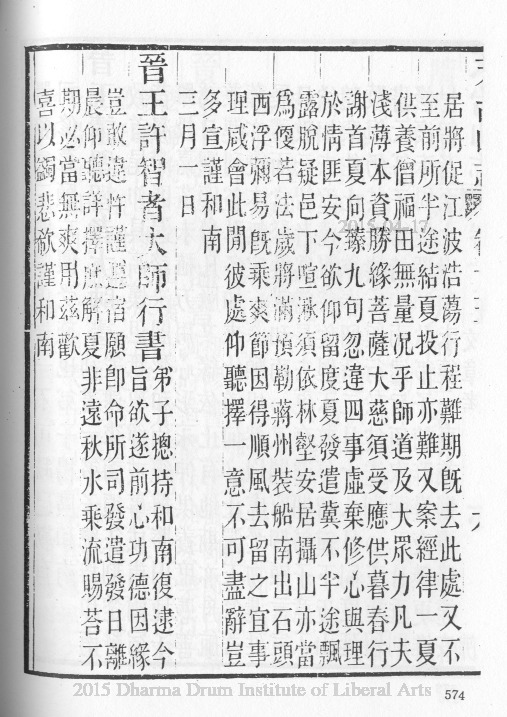 居將促江波浩蕩行程難期旣去此處又不
至前所半途結夏投止亦難又案經律一夏
供養僧福田無量况乎師道及大眾力凡夫
淺薄本資勝緣菩薩大慈須受應供暮春行
謝首夏向臻九旬忽違四事虛棄修心與理
於情匪安今欲仰留度夏發遣冀不半途飄
露脫疑邑下喧湫須依林壑安居攝山亦當
爲偃若法歲將滿預勒蔣州裝船南出石頭
西浮彌易旣乘爽節因得順風去留之宜事
理咸會此閒彼處仰聽擇一意不可盡辭豈
多宣謹和南
三月一日
晉王許智者大師行書
弟子摠持和南復逮今
旨欲遂前心功德因緣
豈敢違忤謹遵宿願卽命所司發遣發日離
晨仰聽詳擇庶解夏非遠秋水乘流賜荅不
期必當無爽用茲歡
喜以蠲悲欲謹和南
574
2015 Dharma Drum Institute of Liberal Arts